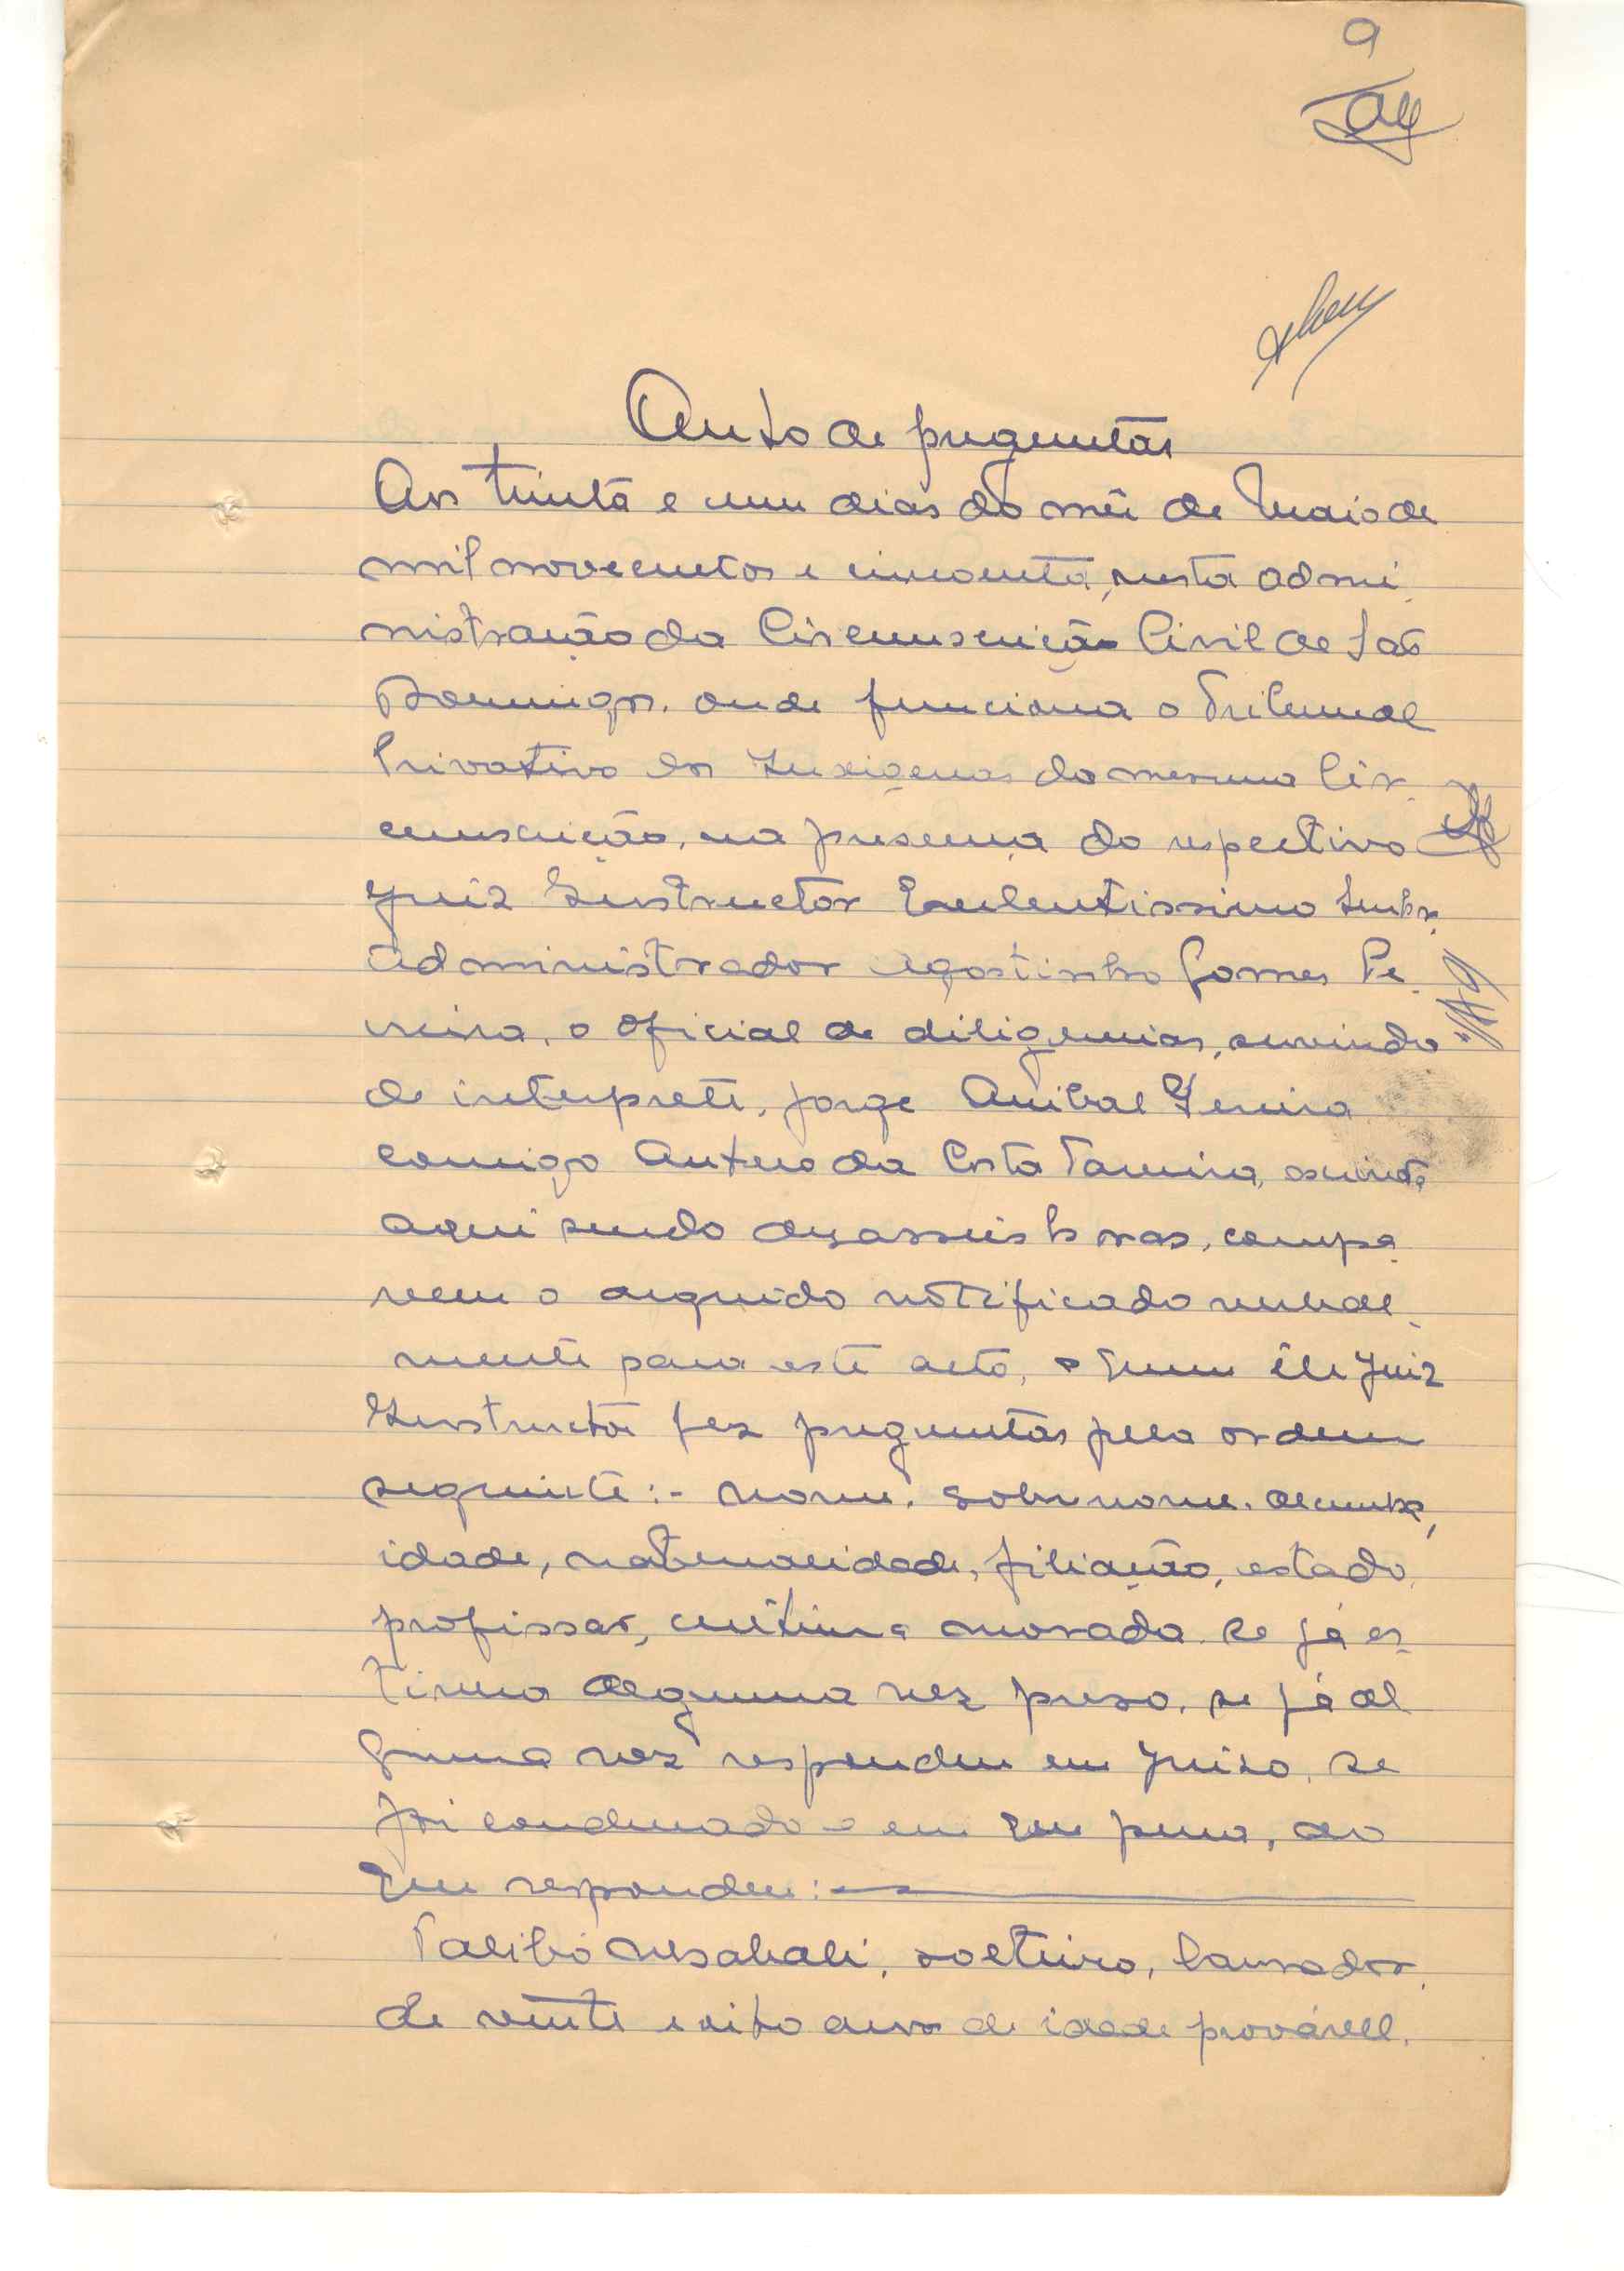 9
Auto de preguntas
Aos trinta e um dias do mês de Maio de
mil novecentos e cincoenta, nesta admi
nistração da Circunscrição Civil de São
Domingos, onde funciona o Tribunal
Privativo dos Indigenas da mesma Cir
cunscrição, na presença do respectivo
Juiz Instructor Excelentissimo Senhor
Administrador Agostinho Gomes Pe
reira, o oficial de diligencias, servindo
de interprete, Jorge Anibal Pereira
comigo Antero da Costa Tavares, escrivão
aqui sendo dezasseis horas, compa
receu o arguido notificado verbal
mente para este acto, a quem êle Juiz
Instructor fez preguntas pela ordem
seguinte:- nome, sobrenome, alcunha,
idade, naturalidade, filiação, estado,
profissão, última morada se já es
tivera alguma vez preso, se já al
guma vez respondeu em Juizo, se
foi condenado e em que pena, ao
que respondeu:
Talibó, solteiro, lavrador,
de vinte e oito anos de idade provável,